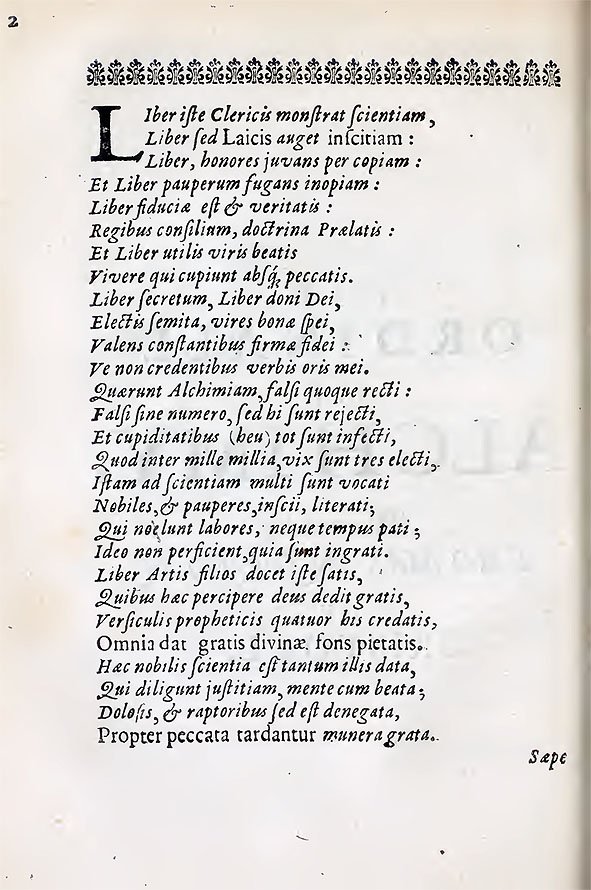 2
LIber iſte Clericis monſtrat ſcientiam,
Liber ſed Laicis auget inſcitiam :
Liber, honores juvans per copiam :
Et Liber pauperum fugans inopiam :
Liber fiduciæ eſt & veritatis :
Regibus conſilium, doctrina Prælatis :
Et Liber utilis viris beatis
Vivere qui cupiunt abſq; peccatis.
Liber ſecretum, Liber doni Dei,
Electis ſemita, vires bonæ ſpei,
Valens conſtantibus firmæ fidei :
Ve non credentibus verbis oris mei.
Quærunt Alchimiam, falſi quoque recti :
Falſi ſine numero, ſed hi ſunt rejecti,
Et cupiditatibus (heu) tot ſunt infecti,
Quod inter mille millia, vix ſunt tres electi,
Iſtam ad ſcientiam multi ſunt vocati
Nobiles, & pauperes, inſcii, literati;
Qui noelunt labores, neque tempus pati ;
Ideo non perficient, quia ſunt ingrati.
Liber Artis filios docet iſte ſatis,
Quibus hæc percipere deus dedit gratis,
Verſiculis propheticis quatuor his credatis,
Omnia dat gratis divinæ fons pietatis.
Hæc nobilis ſcientia eſt tantum illis data,
Qui diligunt juſtitiam, mente cum beata;
Doloſis, & raptoribus ſed eſt denegata,
Propter peccata tardantur munera grata.
Sæpe